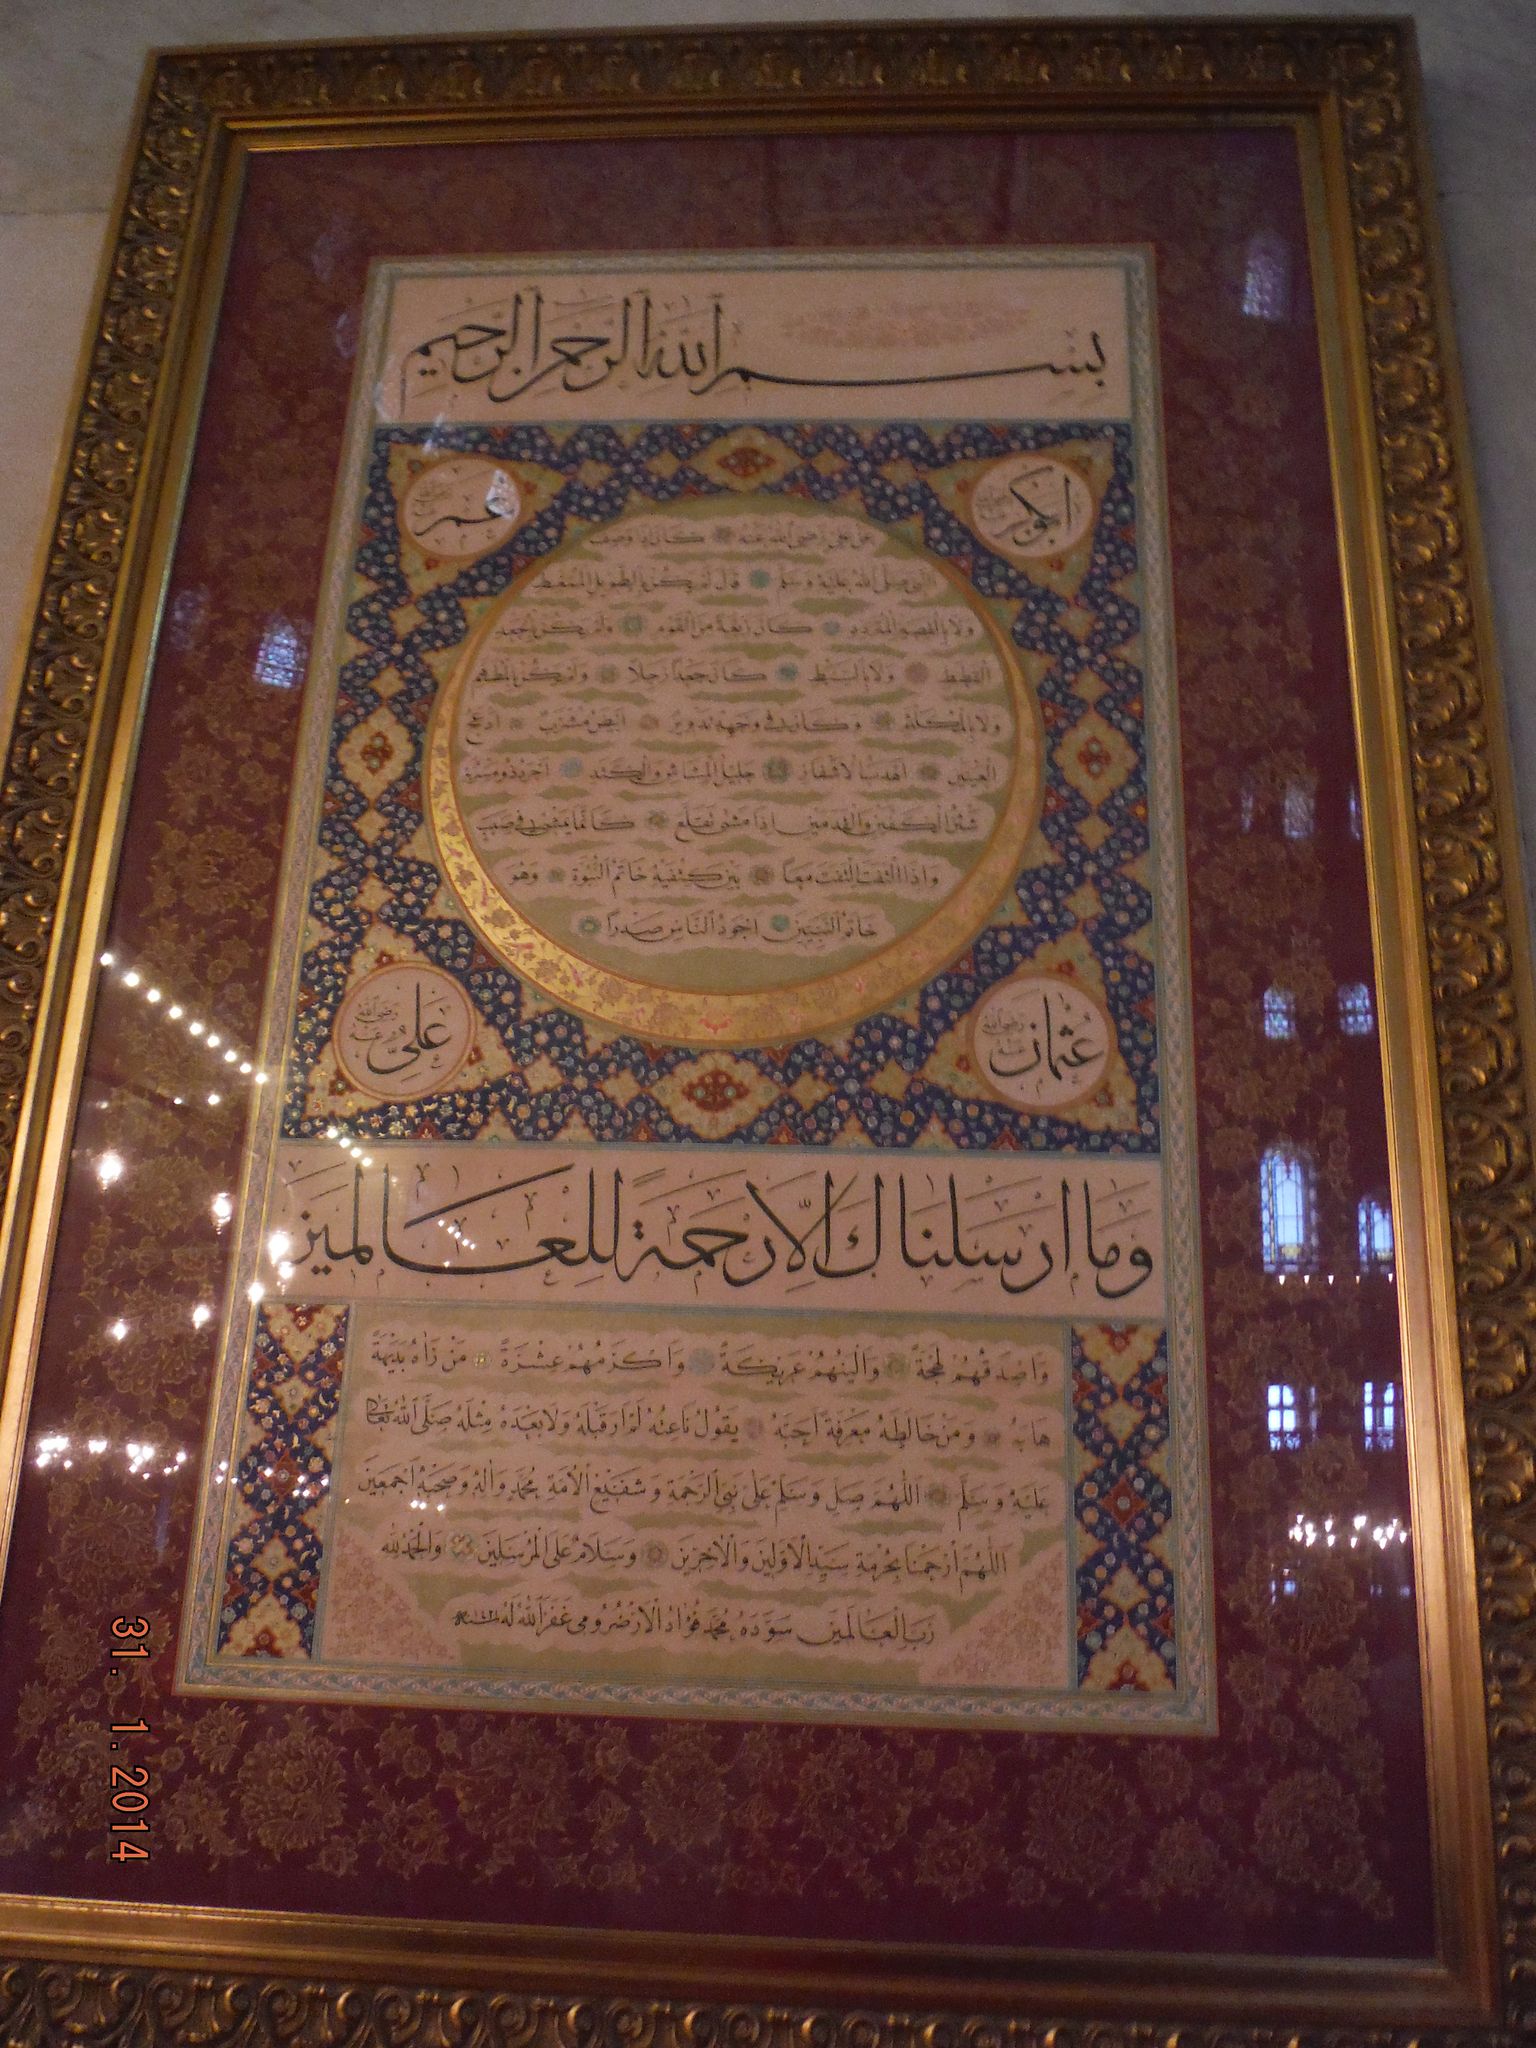 بِسْمِ اللهِ الرَّحْمٰنِ الرَّحِيمِ
ابوبكر رضى الله عنه
عمر رضى الله عنه
عن على رضى الله عنه كان اذا وصف
النبى صلى الله عليه وسلم قال لم يكن بالطويل الممغط
ولا بالقصير المتردد كان ربعة من القوم ولم يكن بالجعد
القطط ولا بالسبط كان جعدا رجلا ولم يكن بالمطهم
ولا بالمكلثم وكان فى وجهه تدوير ابيض مشرب ادعج
العينين اهدب الاشفار جليل المشاش والكتد اجرد ذو مسربة
شثن الكفين والقدمين اذا مشى تقلع كانما يمشى فى صبب
واذا التفت التفت معا بين كتفيه خاتم النبوة وهو
خاتم النبيين اجود الناس صدرا
عثمان رضى الله عنه
على رضى الله عنه
وَمَا اَرْسَلْنَاكَ اِلَّا رَحْمَةً لِلْعَالَمِينَ
واصدقهم لهجة والينهم عريكة واكرمهم عشرة من راه بديهة
هابه ومن خالطه معرفة احبه يقول ناعته لم ار قبله ولا بعده مثله صلى الله تعالى
عليه وسلم اللهم صل وسلم على نبى الرحمة وشفيع الامة محمد واله وصحبه اجمعين
اللهم ارحمنا بحرمة سيد الاولين والاخرين وسلام على المرسلين والحمد لله
رب العالمين سوده محمد فؤاد الارضرومى غفر الله له
31. 1. 2014